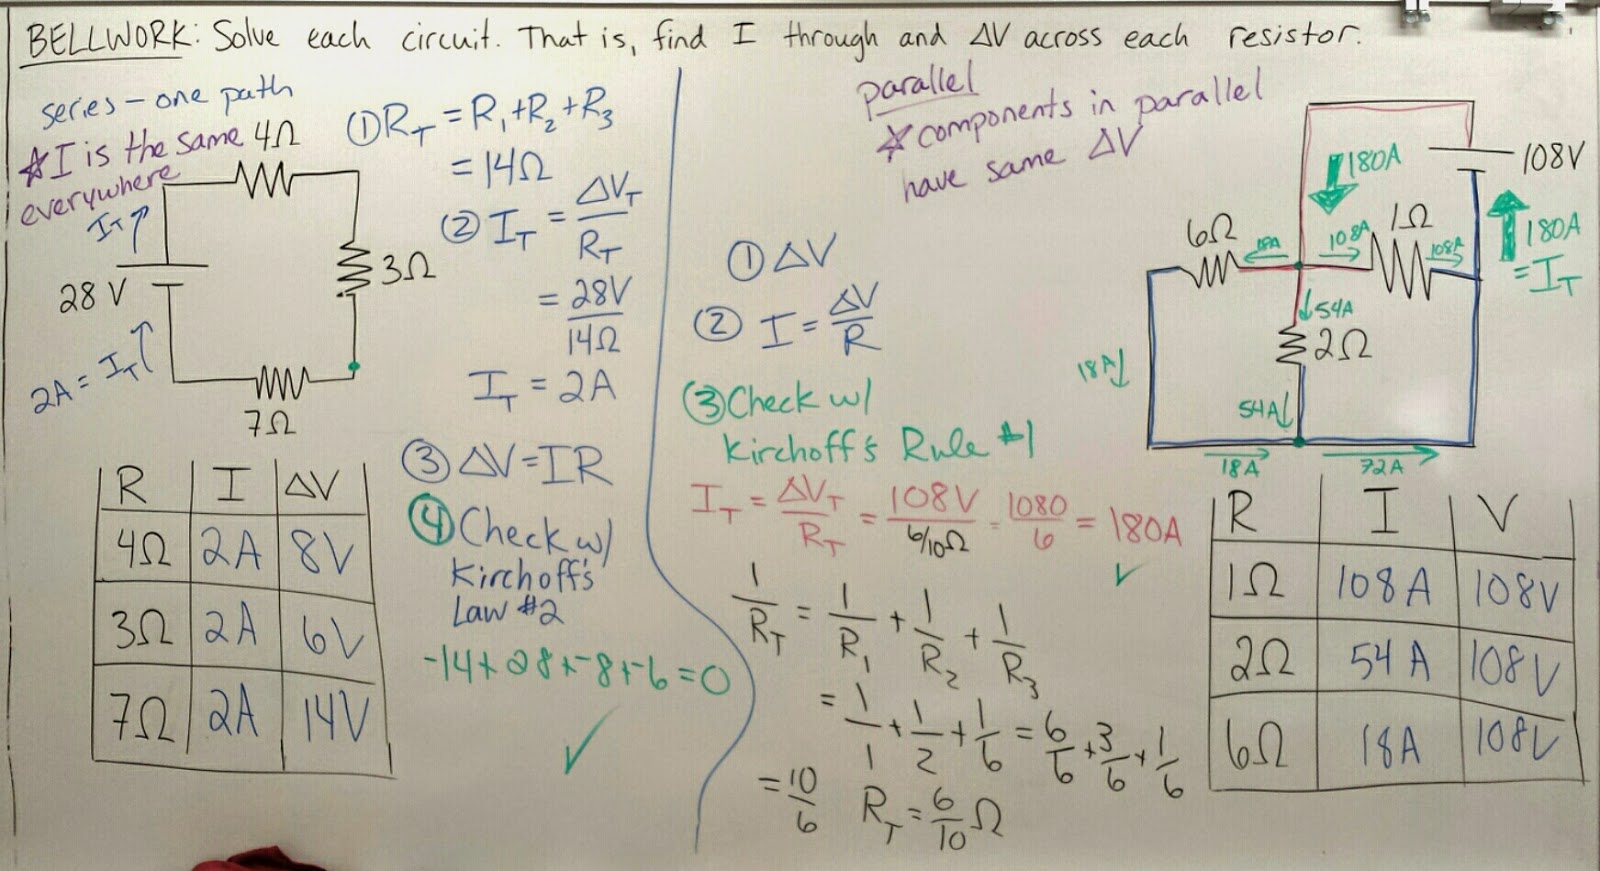 BELLWORK: Solve each circuit. That is, find I through and ΔV across each resistor.
series - one path
☆ I is the same
everywhere
4Ω
I_T
28 V
3Ω
2A = I_T
7Ω
① R_T = R_1 + R_2 + R_3
= 14Ω
② I_T = ΔV_T / R_T
= 28V / 14Ω
I_T = 2A
③ ΔV = IR
④ Check w/
Kirchoff's
Law #2
-14 + 28 + -8 + -6 = 0 ✓
R I ΔV
4Ω 2A 8V
3Ω 2A 6V
7Ω 2A 14V
parallel
☆ components in parallel
have same ΔV
① ΔV
② I = ΔV / R
③ Check w/
Kirchoff's Rule #1
I_T = ΔV_T / R_T = 108V / 6/10Ω = 1080 / 6 = 180A ✓
1/R_T = 1/R_1 + 1/R_2 + 1/R_3
= 1/1 + 1/2 + 1/6 = 6/6 + 3/6 + 1/6
= 10/6 R_T = 6/10 Ω
180A
108V
6Ω
18A
108A
1Ω
108A
180A
= I_T
54A
2Ω
18A
54A
18A
72A
R I V
1Ω 108A 108V
2Ω 54A 108V
6Ω 18A 108V